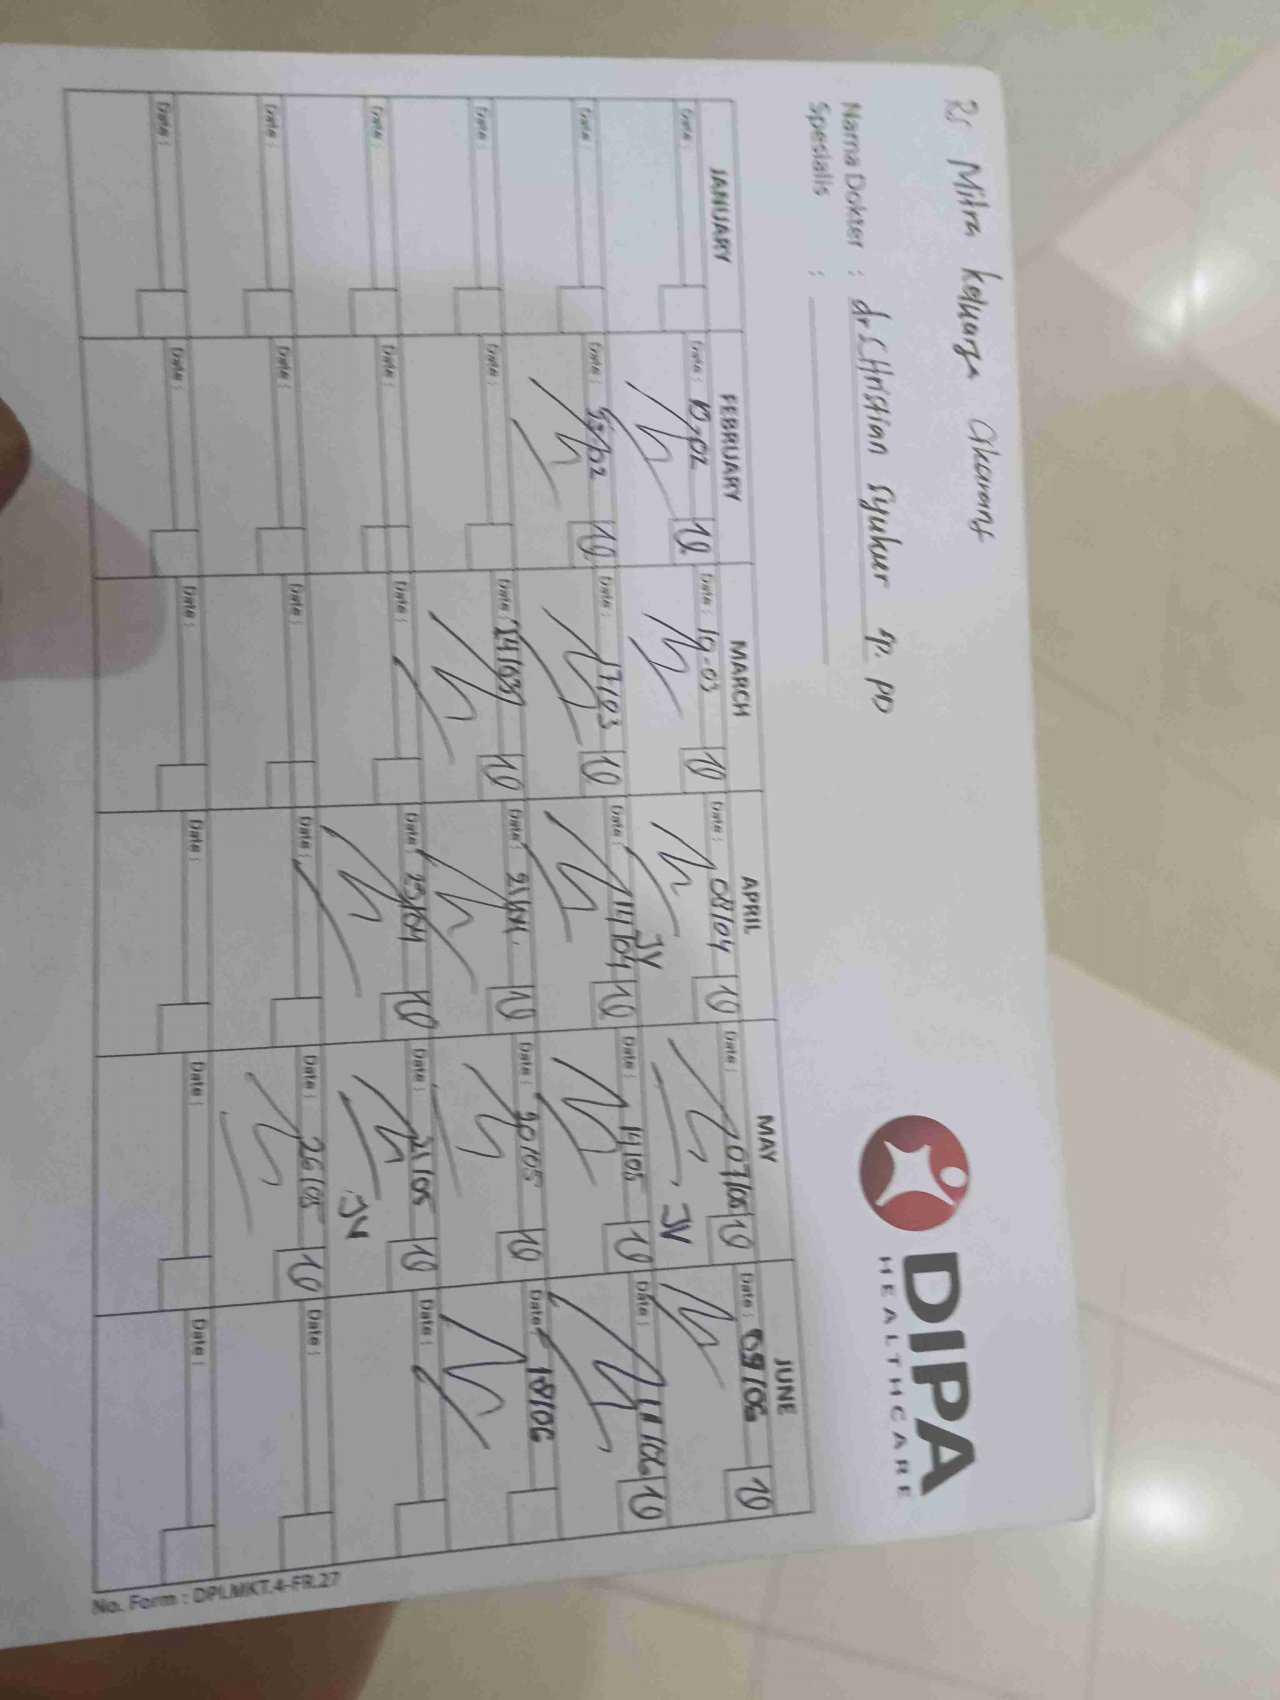 Rs Mitra keluarga Cikarang
DIPA
HEALTHCARE
Nama Dokter : dr. CHristian Syukur Sp. PD
Spesialis :
JANUARY FEBRUARY MARCH APRIL MAY JUNE
Date : Date : 10-02 10 Date : 10-03 10 Date : 08/04 10 Date : 07/05 10 Date : 09/06 10
JV JV
Date : Date : 10 Date : 17/03 10 Date : 14/04 10 Date : 14/05 10 Date : 11/06 10
Date : Date : Date : 24/03 10 Date : 21/04. 10 Date : 20/05 10 Date : 18/06
Date : Date : Date : Date : 23/04 10 Date : 21/05 10 Date :
JV
Date : Date : Date : Date : Date : 26/05 10 Date :
Date : Date : Date : Date : Date : Date :
No. Form : DPI.MKT.4-FR.27